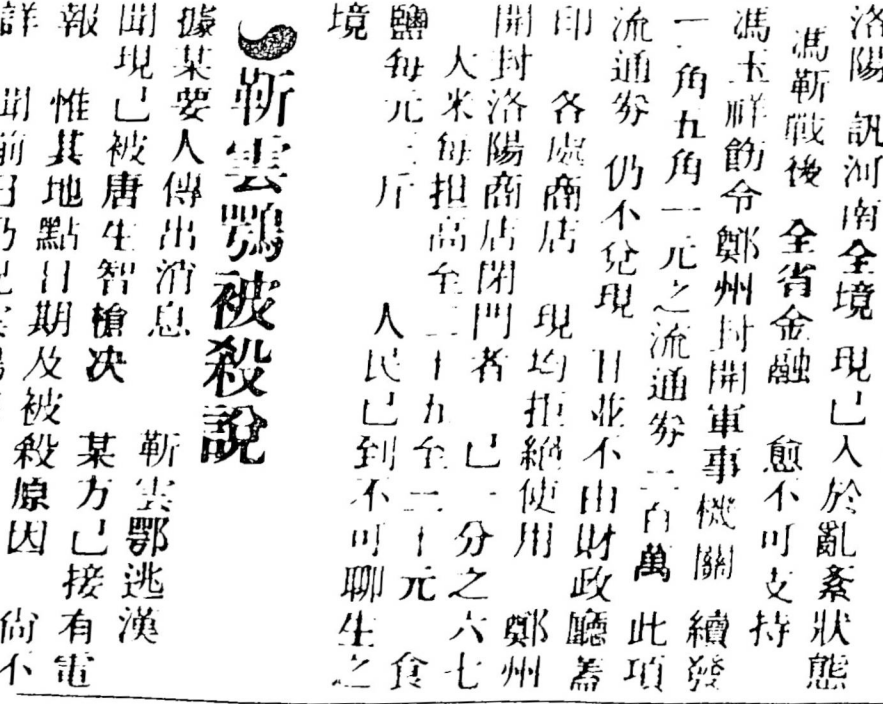 洛陽 訊河南全境 現已入於亂紊狀態
馮靳戰後 全省金融 愈不可支持
馮玉祥飭令鄭州封開軍事機關 續發
一角五角一元之流通券二百萬 此項
流通券 仍不兌現 且並不由財政廳蓋
印 各處商店 現均拒絕使用 鄭州
開封洛陽商店閉門者 已十分之六七
大米每担高至二十五至三十元 食
鹽每元三斤 人民已到不可聊生之
境
靳雲鶚被殺說
據某要人傳出消息 靳雲鄂逃漢
聞現已被唐生智槍決 某方已接有電
報 惟其地點日期及被殺原因 尙不
詳 聞前日